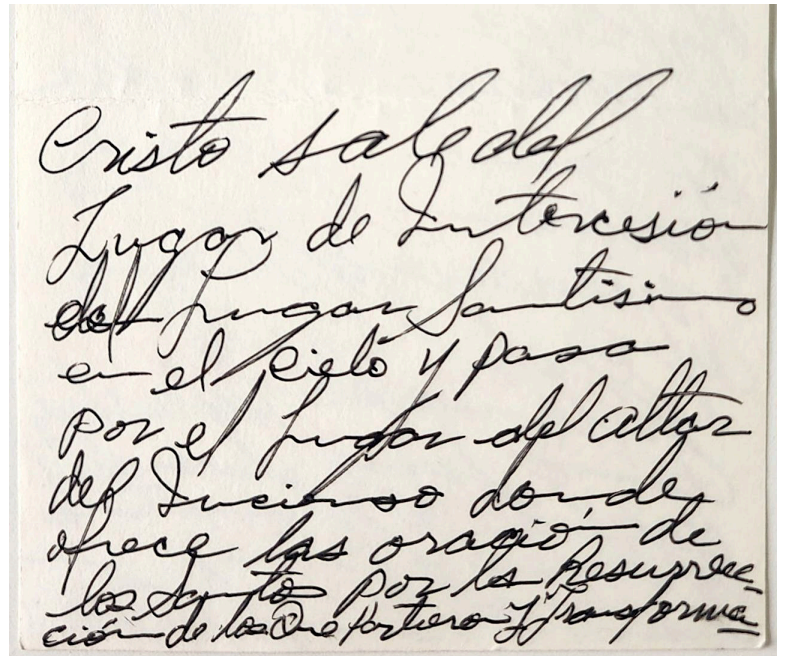 Cristo sale del
Lugar de Intercesión
del Lugar Santisimo
en el cielo y pasa
por el Lugar del altar
del Incienso donde
ofrece las oración de
los Santos por la Resurrec_
ción de los Que Partieron y Transforma_